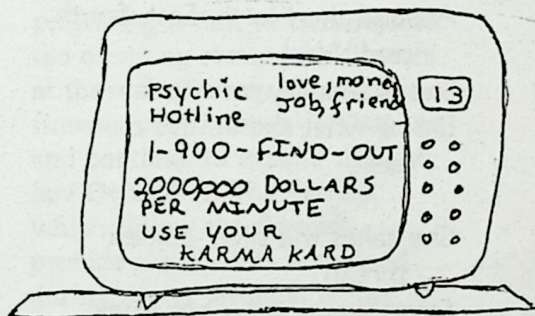 Psychic
Hotline
love, mone
Job, friend
1-900-FIND-OUT
2000,000 DOLLARS
PER MINUTE
USE YOUR
KARMA KARD
13